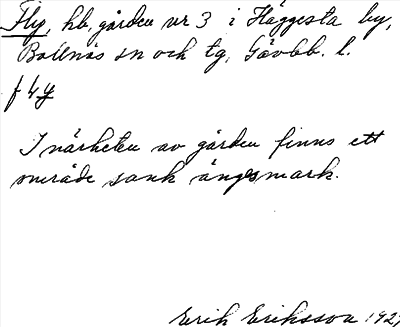 Fly, hb, gården nr 3 i Häggesta by,
Bollnäs sn och tg, Gävbb. l.
I närheten av gården finns ett
område sank ängsmark.
Erik Eriksson